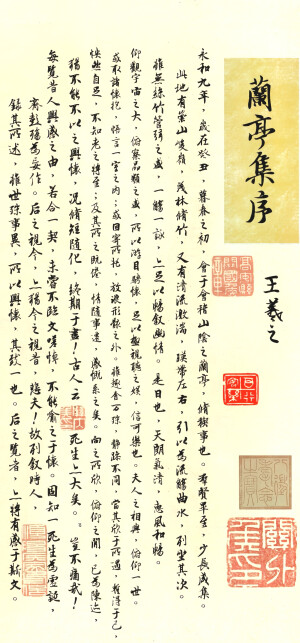 蘭亭集序
王羲之
永和九年，歲在癸丑，暮春之初，會于會稽山陰之蘭亭，脩禊事也。羣賢畢至，少長咸集。
此地有崇山峻嶺，茂林脩竹；又有清流激湍，暎帶左右，引以為流觴曲水，列坐其次。
雖無絲竹管弦之盛，一觴一詠，亦足以暢叙幽情。是日也，天朗氣清，惠風和暢。
仰觀宇宙之大，俯察品類之盛，所以遊目騁懷，足以極視聽之娛，信可樂也。夫人之相與，俯仰一世。
或取諸懷抱，悟言一室之內；或因寄所託，放浪形骸之外。雖趣舍萬殊，靜躁不同，當其欣於所遇，暫得于己，
怏然自足，不知老之將至；及其所之既倦，情隨事遷，感慨系之矣。向之所欣，俯仰之間，已為陳迹，
猶不能不以之興懷，況脩短隨化，終期于盡！古人云：死生亦大矣。豈不痛哉！
每覽昔人興感之由，若合一契，未嘗不臨文嗟悼，不能喻之于懷。固知一死生為虛誕，
齊彭殤為妄作。后之視今，亦猶今之視昔，悲夫！故列叙時人，
錄其所述，雖世殊事異，所以興懷，其致一也。后之覽者，亦將有感于斯文。